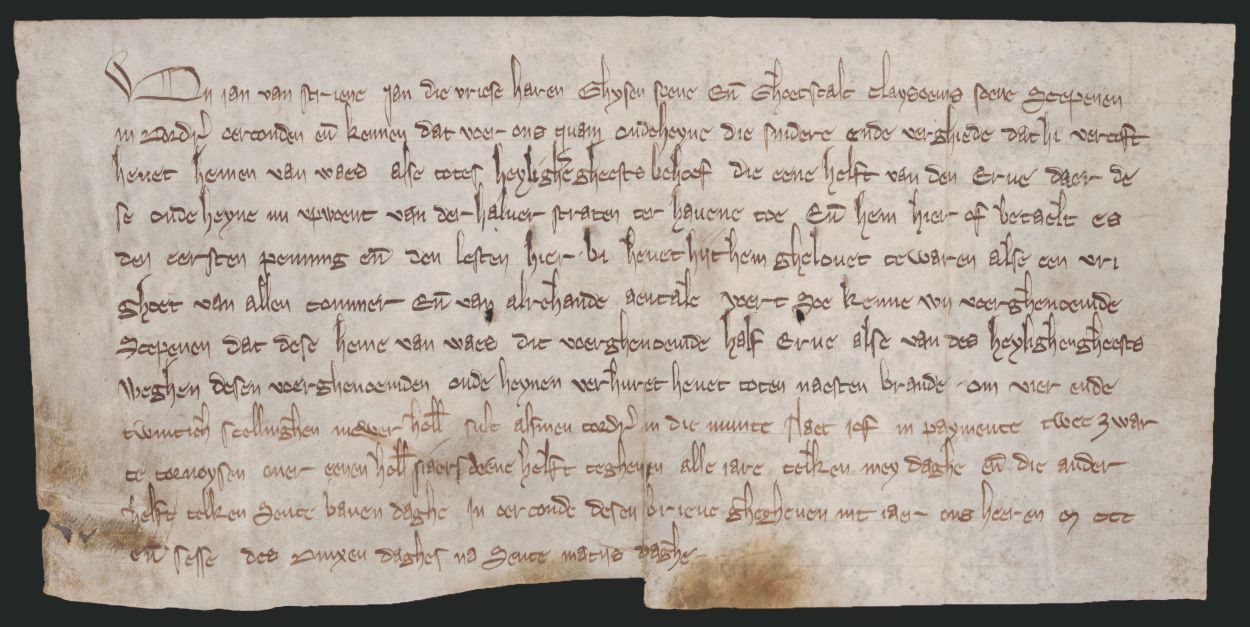 Wi jan van striene jan die vriese haren Ghysen soene en̄ Ghoetscalc claysoens soene Scepenen
in Dordr̄ oerconden en̄ kennen dat voer ons quam oudeheyne die snidere ende verghiede dat hi vercoft
hevet heinen van waes alse totes heylighēgheests behoef die eene helft van den Erve daer de
se oude heyne in upwoent van der halver straten ter havene toe En̄ hem hier of betaelt es
den eersten penning en̄ den lesten hier bi hevet hijt hem ghelovet te waren alse een vri
ghoet van allen commer En̄ van alrehande aentale voert Soe kenne wij voerghenoemde
Scepenen dat dese heine van waes dit voerghenoemde half Erve alse van des heylighengheests
weghen desen voerghenoemden oude heynen verhuret hevet toten naesten brande om vier ende
twintich scellinghen niewer holl̄ sulc alsmen tordr̄ in die munte slaet jof in paymente twee zwar
te tornoysen over eenen holl̄ siaers deene helft te ghevene alle iare telken mey daghe en̄ die ander
helft telken Sente baven daghe In oerconde desen brieve ghegheven int iaer ons heeren m ccc
en̄ sesse des daghes na Sente daghe